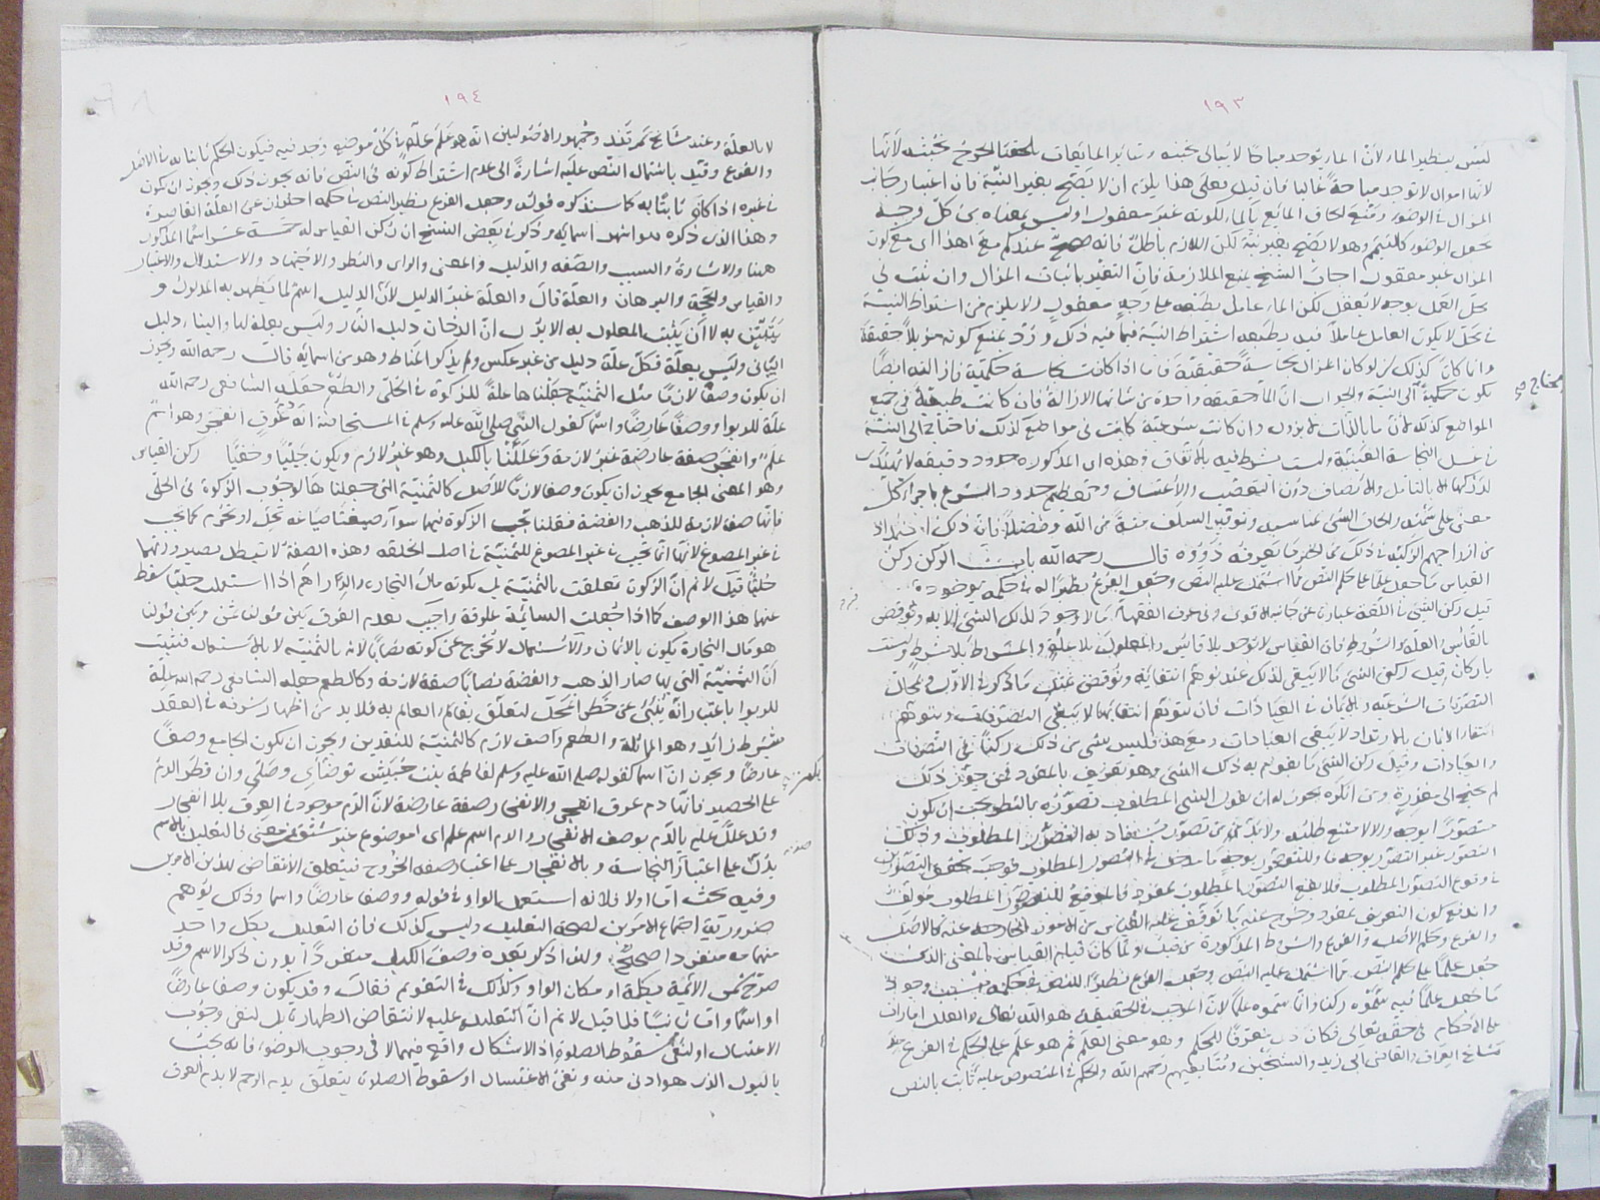 ١٩٣
ليس بنظير الماء لأن الماء يوجد مباحا لا يبالى بخبثه وسائر المائعات يلحقها الحرج بخبثه لأنها
لأنها اموال لا توجد مباحة غالبا فان قيل فعلى هذا يلزم ان لا يصح بغير النية فان اعتبار جانب
المزال في الوضوء ومنع الحاق المائع بالماء لكونه غير معقول اوليس بمعناه من كل وجه
يجعل الوضوء كالتيمم وهو لا يصح بغير نية لكن اللازم باطل فانه صح عندكم مع هذا اى مع كون
المزال غير معقول اجاب الشيخ بمنع الملازمة فان التغير باثبات المزال وان ثبت في
محل العمل بوجه لا يعقل لكن الماء عامل بطبعه على وجه معقول ولا يلزم من اشتراط النية
في محل لا يكون العامل عاملا فيه بطبعه اشتراط النية فيما فيه ذلك ورد بمنع كونه مزيلا حقيقة
وانما كان كذلك لو كان المزال نجاسة حقيقية فاما اذا كانت نجاسة حكمية فازالته ايضا
تكون حكمية الى النية والجواب ان الماء حقيقة واحدة من شأنها الازالة فان كانت طبيعية في جميع
المواضع كذلك لأن ما بالذات لا يزول وان كانت شرعية كانت في مواضع كذلك فاحتياج الى النية
في غسل النجاسة العينية وليست بشرط فيه بالاتفاق وهذه اى المذكورة حدود دقيقة لا يهتدى
لدركها الا بالتأمل والانصاف دون التعصب والاعتساف وتعظيم حدود الشرع باجراء كل
معنى على سننه والحاق الشيء بمناسبه وتوقير السلف منة من الله وفضلا فان ذلك
قال رحمه الله باب الركن ركن
القياس ما جعل علما على حكم النص مما اشتمل عليه النص وجعل الفرع نظيرا له في حكمه بوجوده فيه
قيل ركن الشيء في اللغة عبارة عن جانبه الاقوى وفي عرف الفقهاء ما لا وجود لذلك الشيء الا به ونوقض
بالقائس والعلة والشروط فان القياس لا يوجد بلا قايس والمعلول بلا علة والمشروط بلا شرط وليست
باركان وقيل ركن الشيء ما لا يبقى لذلك عند توهم انتفائه ونوقض
التصرفات الشرعية والايمان في العبادات فان بتوهم انتفائها لا يبقى التصرفات وبتوهم
انتفاء الايمان بالارتداد لا يبقى العبادات ومع هذا فليس شيء من ذلك ركنا في التصرفات
والعبادات وقيل ركن الشيء ما يقوم به ذلك الشيء وهو تعريف بالمفرد فمن جوز ذلك
لم يحتج الى معذرة ومن انكره يجوز له ان يقول الشيء المطلوب تصوره بالنظر يجب ان يكون
متصورا بوجه والا لامتنع طلبه ولا بد من تصور يستفاد به التصور المطلوب وذلك
التصور غير التصور بوجه ما وللتصور بوجه ما مدخل في التصور المطلوب فوجب تحقق التصورين
في وقوع التصور المطلوب فلا يقع التصور المطلوب بمفرد فالموقع للتصور المطلوب مؤلف
واندفع كون التعريف بمفرد وخرج عنه ما توقف عليه القياس من الامور الخارجة عنه كالاصل
والفرع وحكم الاصل والفرع والشروط المذكورة من قبل ولما كان قيام القياس بالمعنى الذى
جعل علما على حكم النص مما اشتمل عليه النص وجعل الفرع نظيرا للنص في حكمه بسبب وجود
ما جعل علما فيه سموه ركنا وانما سموه علما لان الموجب في الحقيقة هو الله تعالى والعلل امارات
على الاحكام في حقه تعالى فكان معرفا للحكم وهو معنى العلم ثم هو علم على الحكم في الفرع عند
مشايخ العراق والقاضى ابى زيد والشيخين ومتابعيهم رحمهم الله والحكم في المنصوص عليه ثابت بالنص
١٩٤
لا بالعلة وعند مشايخ سمرقند وجمهور الاصوليين انه هو علم علة في كل موضع وجد فيه فيكون الحكم ثابتا به في الاصل
والفرع وقيد باشتمال النص عليه اشارة الى عدم اشتراط كونه في النص فانه يجوز ذلك ويجوز ان يكون
في غيره اذا كان ثابتا به كما سنذكره فوائد وجعل الفرع نظير النص في حكمه احتراز عن العلة القاصرة
وهذا الذى ذكره هو اشهر اسمائه وذكر في بعض النسخ ان ركن القياس له خمسة عشر اسما المذكور
ههنا والاشارة والسبب والصفة والدليل والمعنى والراى والنظر والاجتهاد والاستدلال والاعتبار
والقياس والحجة والبرهان والعلة قال والعلة غير الدليل لأن الدليل اسم لما يظهر به المدلول و
يتبين به لا ان يثبت المعلول به الا يرى ان الدخان دليل النار وليس بعلة لها والبناء دليل
البانى وليس بعلة فكل علة دليل من غير عكس ولم يذكر المناط وهو من اسمائه قال رحمه الله ويجوز
ان يكون وصفا لازما مثل الثمنية جعلناها علة للزكوة في الحلى والطعم جعله الشافعى رحمه الله
علة للربوا ووصفا عارضا واسما كقول النبى صلى الله عليه وسلم في المستحاضة انه دم عرق انفجر وهو اسم
علم وانفجر صفة عارضة غير لازمة وعللنا بالكيل وهو غير لازم ويكون جليا وخفيا ركن القياس
وهو المعنى الجامع يجوز ان يكون وصفا لازما للاصل كالثمنية التى جعلناها لوجوب الزكوة في الحلى
فانها صفة لازمة للذهب والفضة فقلنا تجب الزكوة فيهما سواء صيغتا صياغة تحل او تحرم كما يجب
في غير المصوغ لانها انما تجب في غير المصوغ للثمنية في اصل الخلقة وهذه الصفة لا تبطل بصيرورتهما
حليا قيل لا نم ان الزكوة تعلقت بالثمنية بل بكونه مال التجارة والدراهم اذا استعمل حليا سقط
عنها هذا الوصف كما اذا جعلت السائمة علوفة واجيب بعدم الفرق بين قولنا ثمن وبين قولنا
هو مال التجارة يكون بالاثمان والاستعمال لا يخرج عن كونه نصابا لانه بالثمنية لا بالاستعمال فتثبت
ان الثمنية التى بها صار الذهب والفضة نصابا صفة لازمة وكالطعم جعله الشافعى رحمه الله علة
للربوا باعتبار انه ينبئ عن خطر المحل لتعلق بقاء العالم به فلا بد من اظهار شرفه في العقد
بشرط زائد وهو المماثلة والطعم وصف لازم كالثمنية للنقدين ويجوز ان يكون الجامع وصفا
عارضا ويجوز ان اسما كقوله صلى الله عليه وسلم لفاطمة بنت حبيش توضأى وصلى وان قطر الدم
على الحصير فانها دم عرق انفجر والانفجار صفة عارضة لأن الدم موجود في العرق بلا انفجار
وقد علل عليه بالدم بوصف الانفجار والدم اسم علم اى موضوع غير مشتق من معنى فالتعليل بالاسم
يدل على اعتبار النجاسة وبالانفجار على اعتبار صفة الخروج فيتعلق الانتقاض للذين الامرين
وفيه بحث اما اولا فلانه استعمل الواو في قوله ووصفا عارضا واسما وذلك يوهم
ضرورية اجتماع الامرين لصحة التعليل وليس كذلك فان التعليل بكل واحد
منهما منفردا صحيح ولهذا ذكر بعده وصف الكيل منفردا بدون ذكر الاسم وقد
صرح شمس الائمة بكلمة او مكان الواو وكذلك في التقويم فقال وقد يكون وصفا عارضا
او اسما واما ثانيا فلما قيل لا نم ان التعليل عليه لانتقاض الطهارة بل لنفى وجوب
الاغتسال او لنفى سقوط الصلوة اذ الاشكال واقع فيهما لا في وجوب الوضوء فانه يجب
بالبول الذى هو ادنى منه ونفى الاغتسال او سقوط الصلوة يتعلق بدم الرحم لا بدم العرق